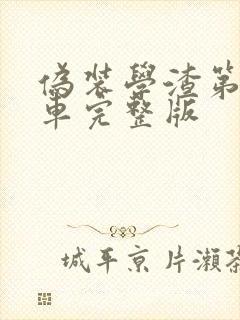 偽裝學渣第
車完整版
城平京 片瀨茶